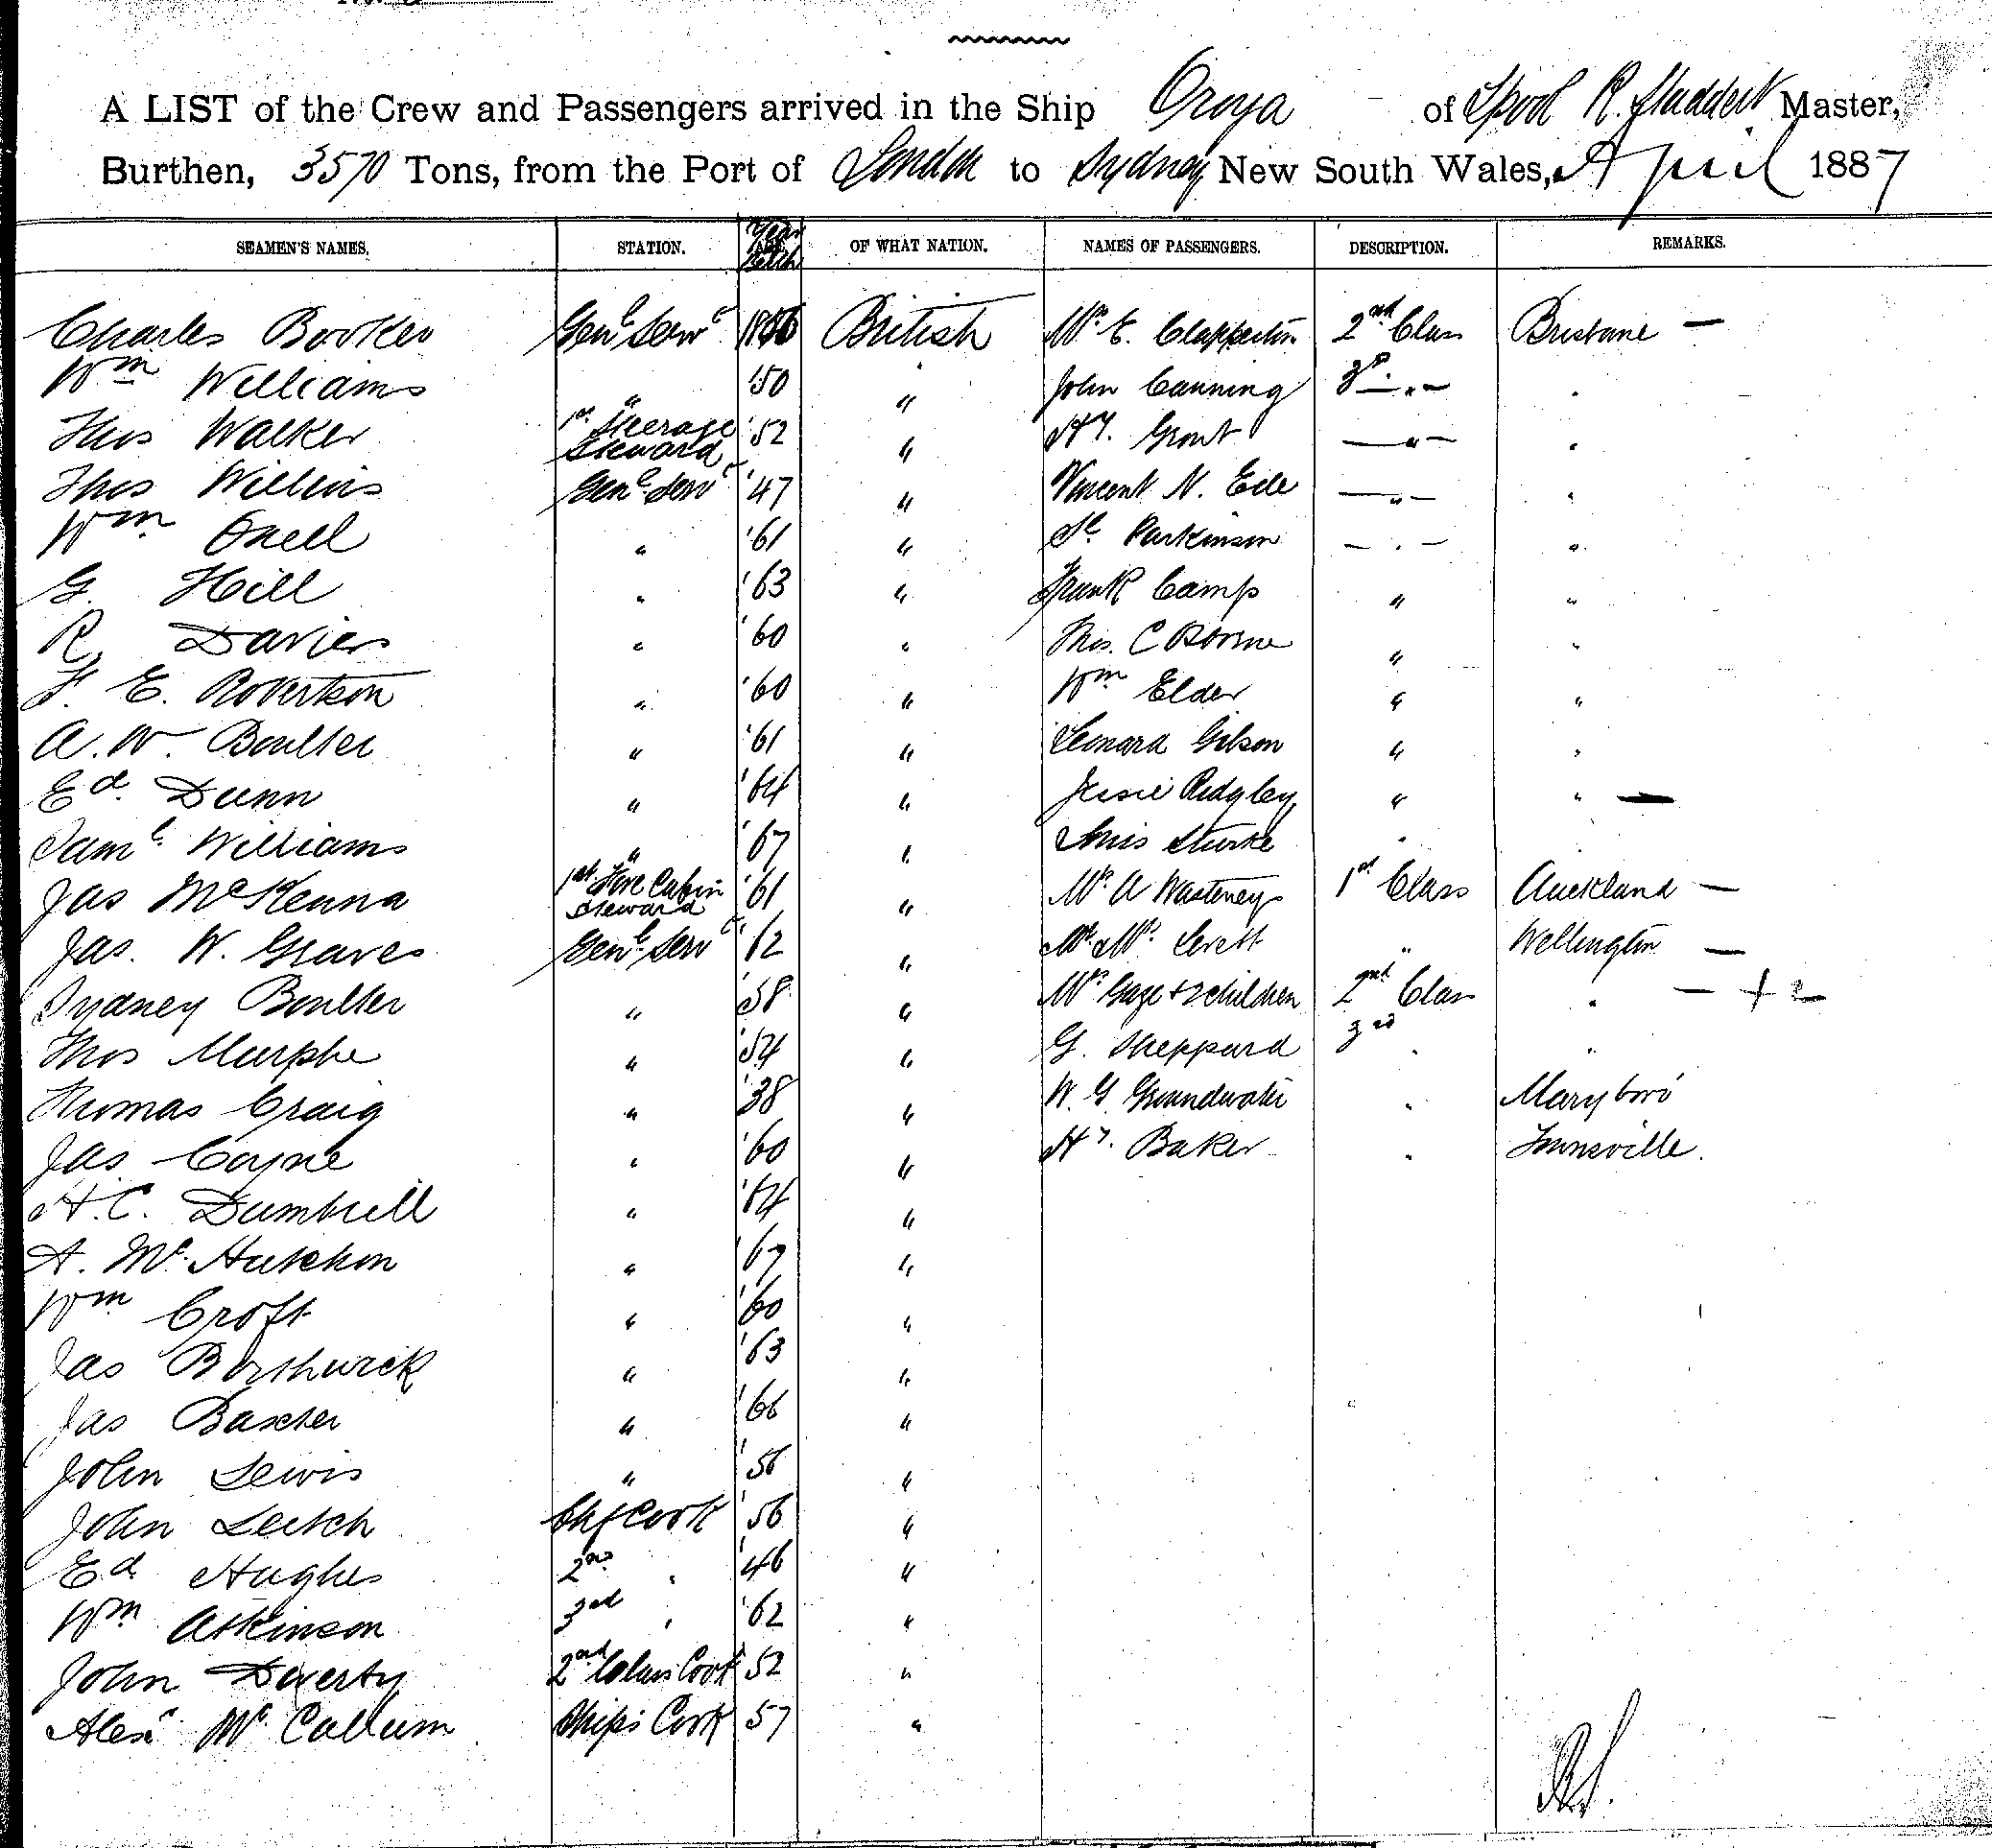 A LIST of the Crew and Passengers arrived in the Ship Oroya of Lpool R. Studdert Master,
Burthen, 3570 Tons, from the Port of London to Sydney New South Wales, April 1887
SEAMEN'S NAMES. STATION. Year Birth OF WHAT NATION. NAMES OF PASSENGERS. DESCRIPTION. REMARKS.
Charles Booker Genl Servt British Mrs E. Clapperton 2nd Class Brisbane —
Wm Williams " '50 " John Canning 3rd — " — "
Thos Walker 1st Steerage Steward '52 " Hy. Grout — " — "
Thos Wilkins Genl Servt '47 " Vincent N. Ede — " — "
Wm Oneil " '61 " Parkinson — " — "
G. Hill " '63 " Frank Camp " "
R. Davies " '60 " Thos. C Borne " "
F. E. Robertson " '60 " Wm Elder " "
A. W. Boulter " '61 " Leonard Gibson " "
Ed. Dunn " '64 " Jessie Ridgley " " —
Saml Williams " '67 " "
Jas McKenna 1st Fore Cabin Steward '61 " Mrs A Wasteneys 1st Class Auckland —
Jas. W. Graves Genl Servt '62 " Mr & Mrs Levett " Wellington —
Sydney Boulter " '58 " Mrs Gage + 2 children 2nd Class " — + 2
Thos Murphe " '54 " G. Sheppard 3rd " "
Thomas Craig " '38 " W. G. Groundwater " Maryboro'
Jas Coyne " '60 " Hy. Baker " Townsville.
H. C. Dumbrell " '64 "
A. Mc.Hutchon " '67 "
Wm Croft " '60 "
Jas Borthwick " '63 "
Jas Baxter " '66 "
John Lewis " '56 "
John Leitch Chf Cook '56 "
Ed Hughes 2nd " '46 "
Wm Atkinson 3rd " '62 "
John Doverty 2nd Class Cook '52 "
Alexr McCallum Ships Cook '57 "